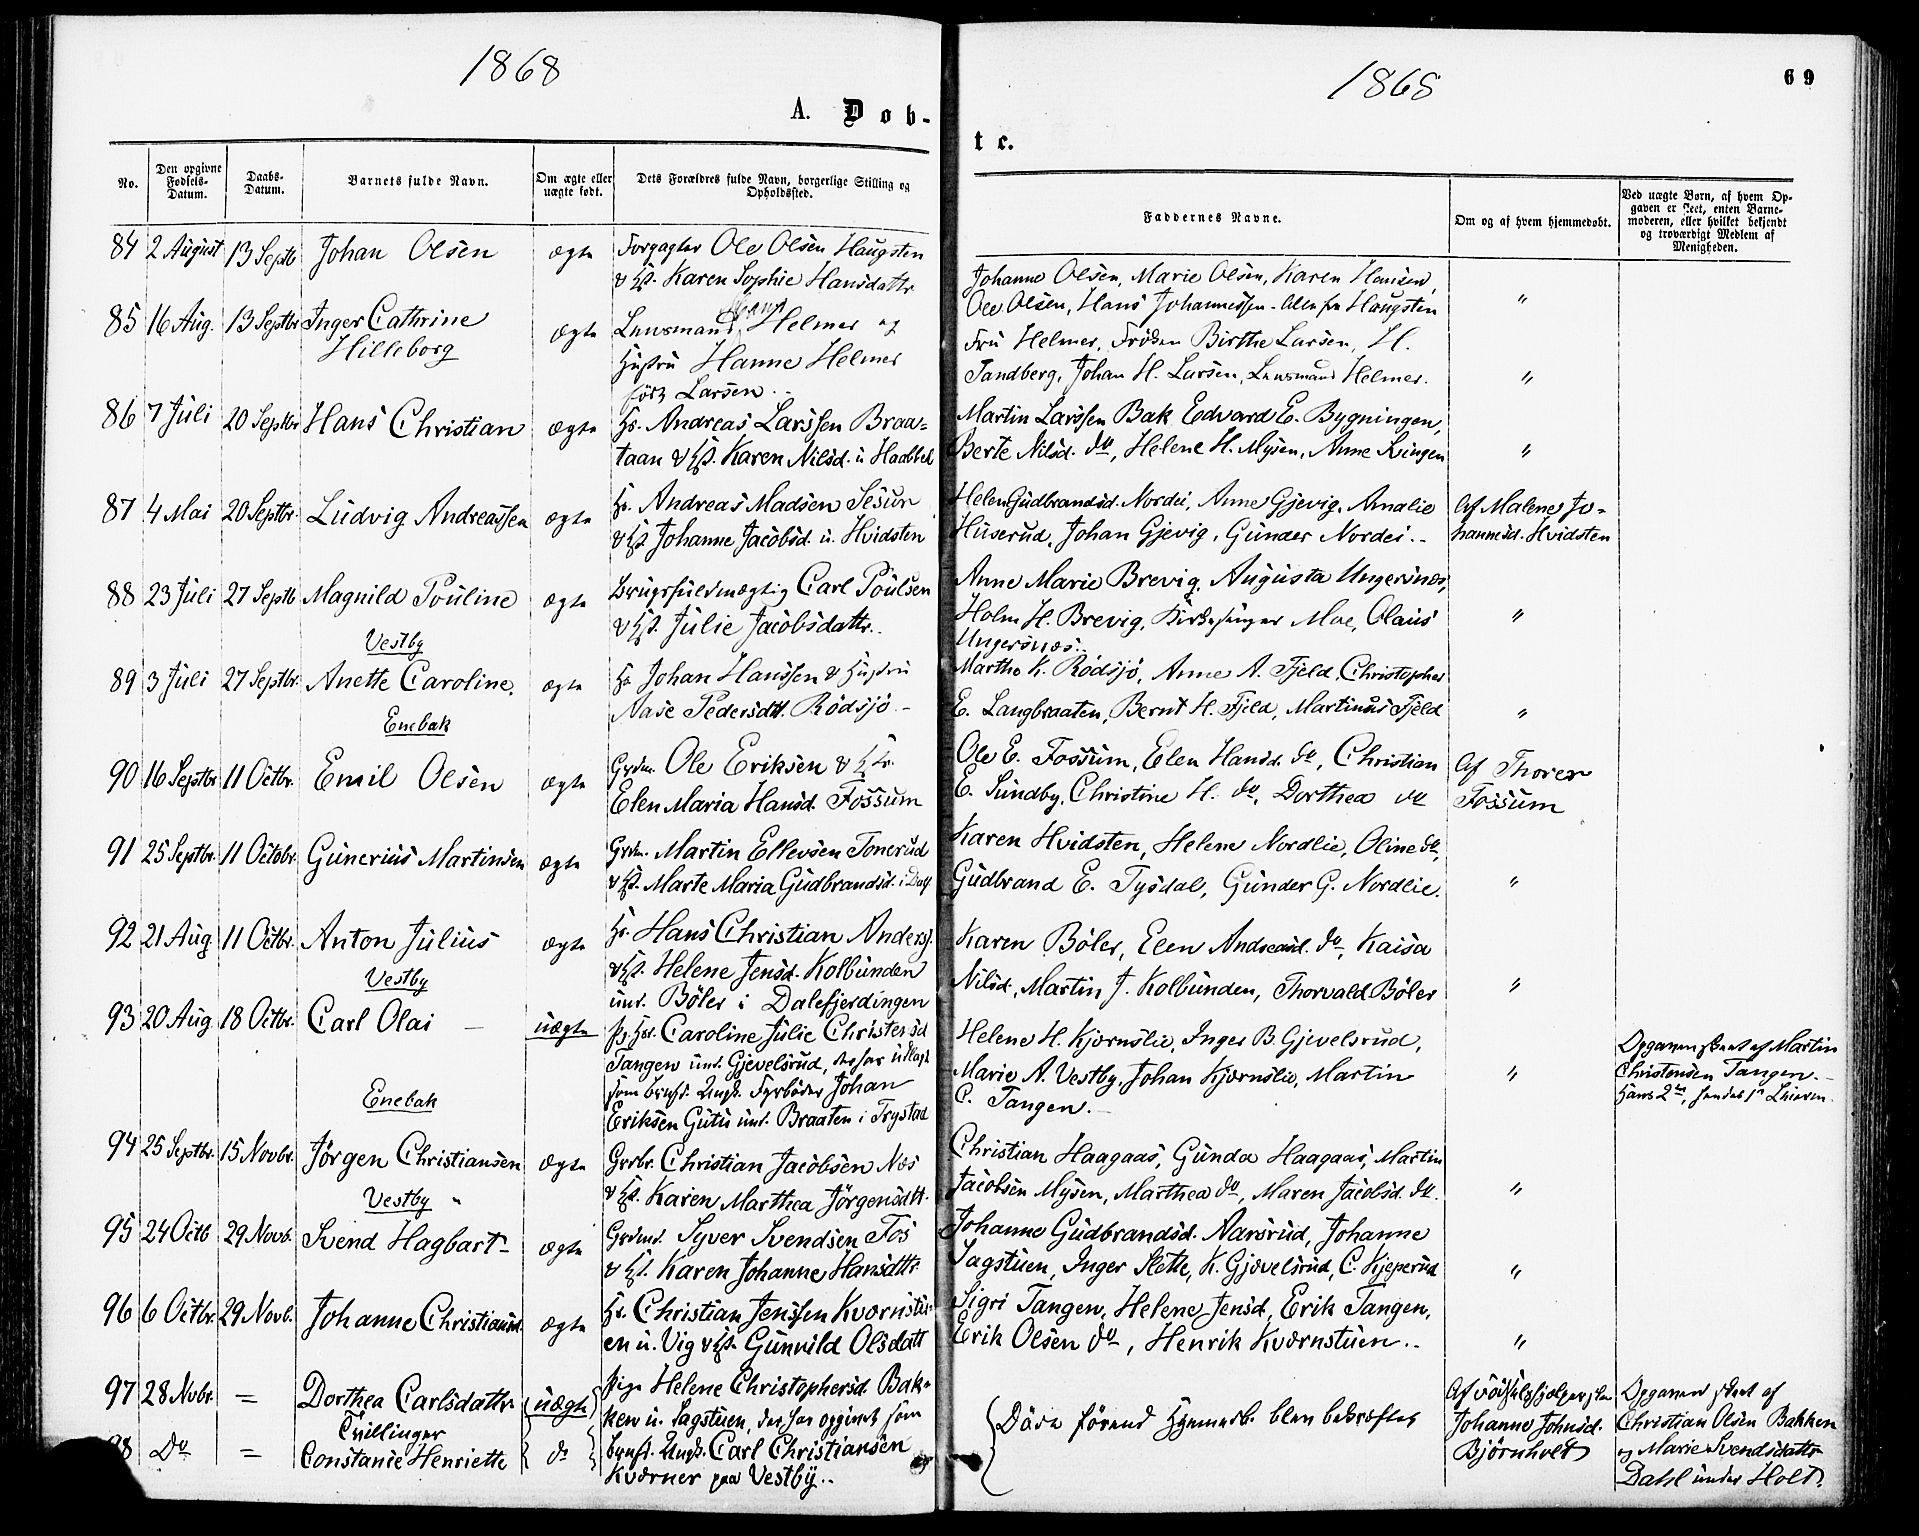 1868
A. Døb-
No.
Den opgivne Fødsels-Datum.
Daabs-Datum.
Barnets fulde Navn.
Om ægte eller uægte født.
Dets Forældres fulde Navn, borgerlige Stilling og Opholdssted.
84 2 August 13 Septb Johan Olsen ægte Forpagter Ole Olsen Haugsten
& H. Karen Sophie Hansdattr
85 16 Aug. 13 Septbr Inger Cathrine ægte Lensmand Helmer og
Hilleborg Hustru Hanne Helmer
født Larsen..
86 7 Juli 20 Septbr Hans Christian ægte Hr. Andreas Larssen Braa-
taan & H. Karen Nilsd. u
87 4 Mai 20 Septbr. Ludvig Andreassen ægte Hr. Andreas Madsen
& H. Johanne Jacobsd. u. Hvidsten
88 23 Juli 27 Septb Magnild Pouline ægte Brugsfuldmægtig Carl Poulsen
Vestby & H. Julie Jacobsdattr..
89 3 Juli 27 Septbr. Anette Caroline. ægte Hr Johan Hanssen & Hustru
Enebak Aase Pedersdtt. Rødsjø -
90 16 Septbr 11 Octbr. Emil Olsen ægte Grdm. Ole Eriksen & H
Elen Maria Hansd. Fossum
91 25 Septbr. 11 Octobr. Gunerius Martinsen ægte Grdm. Martin Ellevsen Tonerud
& H. Marte Maria Gudbrandsd.
92 21 Aug 11 Octbr. Anton Julius ægte Hr. Hans Christian Anders.
Vestby & H. Helene Jensd. Kolbunden
und. Bøler i Dalefjerdingen
93 20 Aug 18 Octbr. Carl Olai - uægte Caroline Julie Christensd
Tangen und. Gjevelsrud, der har udlagt
Enebak som Ungk. Fyrbøder Johan
Eriksen Gutu und. Braaten i Trøstad
94 25 Septbr. 15 Novbr. Jørgen Christiansen ægte Grbr. Christian Jacobsen Næs
Vestby " & H. Karen Marthea Jørgensdtt.
95 24 Octb 29 Novb. Svend Hagbart- ægte Grdmd. Syver Svendsen Fos
& H. Karen Johanne Hansdttr
96 6 Octbr. 29 Novb. Johanne Christiansd. ægte Hr. Christian Jenssen Kværnstu-
en u. Vig & H. Gunnild Olsdatt
97 28 Nvbr. = Dorthea Carlsdattr uægte Pige Helene Christophersd Bak-
Tvillinger ken u. Sagstuen, der har opgivet som
98 Do = Constance Henriette do Ungk. Carl Christiansen
Kværner paa Vestby..
1868
69
te.
Faddernes Navne.
Om og af hvem hjemmedøbt.
Ved uægte Børn, af hvem Opgaven er skeet, enten Barnemoderen, eller hvilket bekjendt og troværdigt Medlem af Menigheden.
Johanne Olsen, Marie Olsen, Karen Hansen,
Ole Olsen, Hans Johannessen - Alle fra Haugsten "
Fru Helmer, Frøken Birthe Larsen, H.
Tandberg, Johan H. Larsen, Lensmand Helmer. "
Martin Larssen Bak Edvard E. Bygningen,
Berte Nilsd. do, Helene H. Mysen, Anne Ringen "
Helen Gudbrandsd. Nordei, Anne Gjevig, Amalie Af Malene Jo-
Huserud, Johan Gjevig, Gunder Nordei.. hannesd. Hvidsten
Anne Marie Brevig, Augusta Ungersnæs,
Holm H. Brevig, Kirkesanger Moe, Olaus "
Ungersnæs..
Marthe K. Rødsjø, Anne A. Fjeld, Christopher
E. Langbraaten, Bernt H. Fjeld, Martinus Fjeld "
Ole E. Fossum, Elen Hansd. do, Christian Af Thorer
E. Sundby, Christine H. do, Dorthea do Fossum
Karen Hvidsten, Helene Nordlie, Oline do,
Gudbrand E. Tysdal, Gunder G. Nordlie. "
Karen Bøler, Elen Andreasd. do, Kaisa
Nilsd, Martin J. Kolbunden, Thorvald Bøler "
Helene H. Kjærnslie, Inger B. Gjevelsrud, Opgaven skeet af Martin
Marie A. Vestby, Johan Kjærnslie, Martin " Christensen Tangen.-
C. Tangen.-
Christian Haagaas, Gunda Haagaas, Martin
Jacobsen Mysen, Marthea do, Maren Jacobsd. do. "
Johanne Gudbrandsd. Aarsrud, Johanne
Sagstuen, Inger Slette, K. Gjævelsrud, C. Kjeperud "
Sigri Tangen, Helene Jensd, Erik Tangen,
Erik Olsen do, Henrik Kværnstuen.. "
Døde førend Hjemmedb. blev bekræftet Af
Johanne Johnsd.
Bjørnholt
Opgaven skeet af
Christian Olsen Bakken
og Marie Svendsdattr
Dahl under Holt.